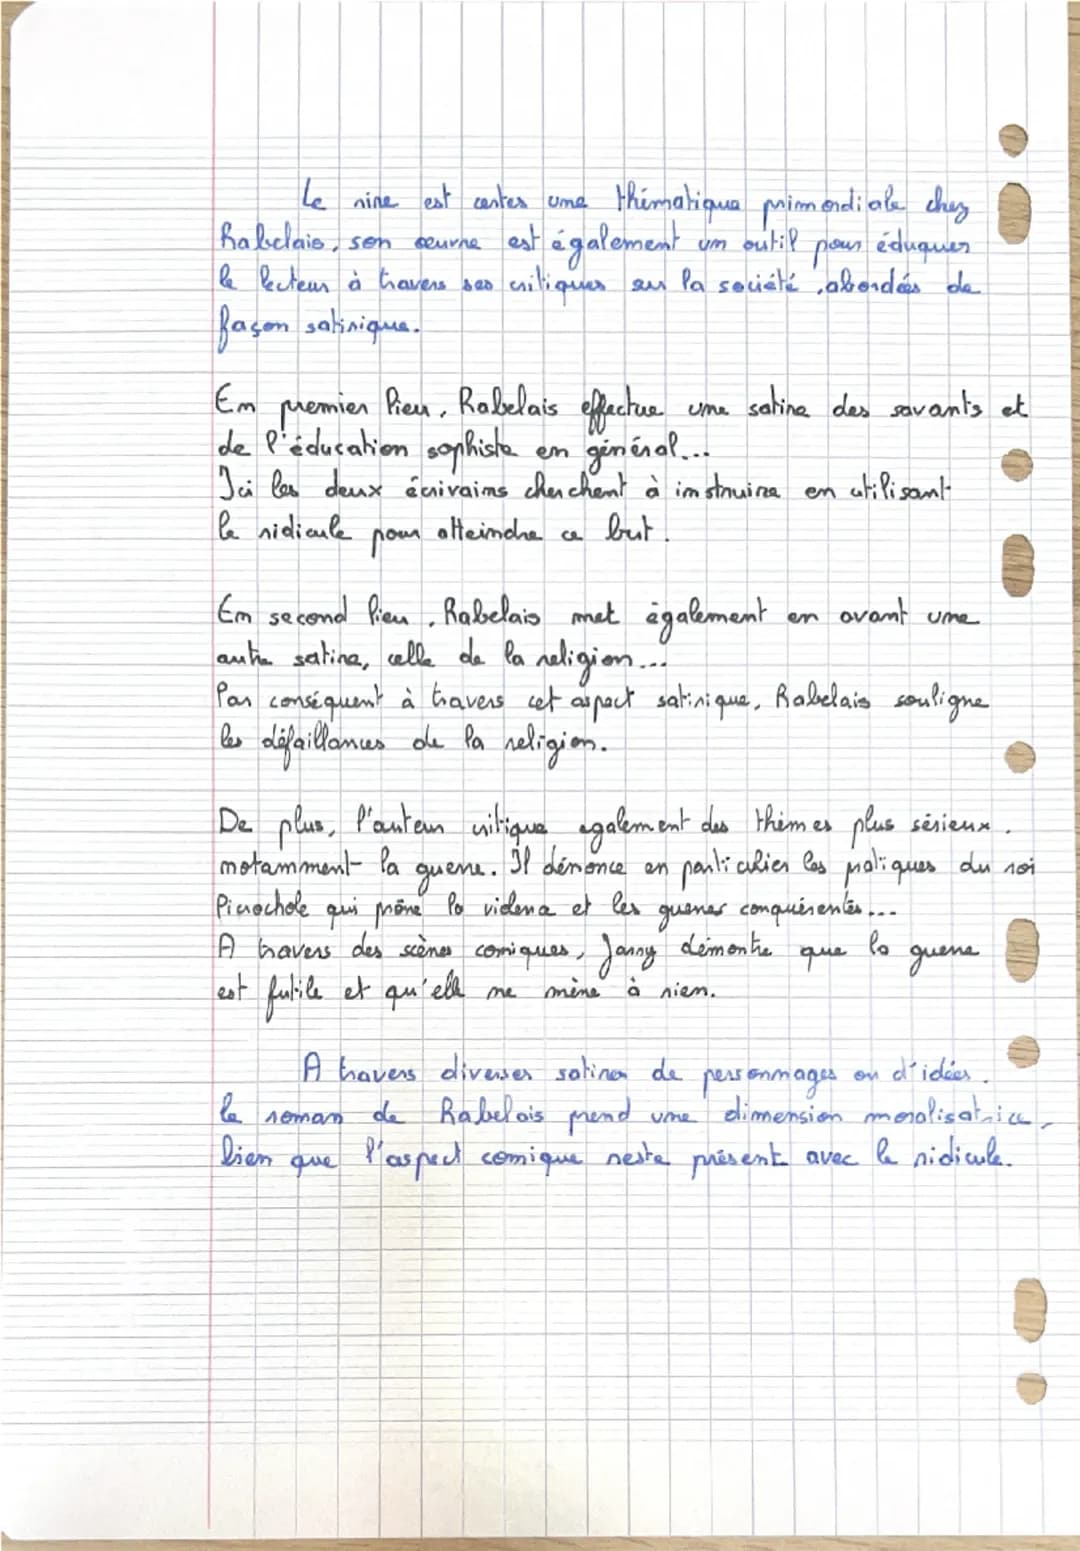 Le rire est certes une thématique primordiale chez
Rabelais, son œuvre est également un outil pour éduquer
le lecteur à travers ses critiques sur la société, abordés de
façon satirique.
En premier lieu, Rabelais effectue une satire des savants et
de l'éducation sophiste en général...
Ici les deux écrivains cherchent à instruire en utilisant
le ridicule pour atteindre ce but.
En second lieu, Rabelais met également en avant une
autre satire, celle de la religion...
Par conséquent à travers cet aspect satirique, Rabelais souligne
les défaillances de la religion.
De plus, l'auteur critique egalement des thèmes plus sérieux,
notamment la guerre. Il dénonce en particulier les pratiques du roi
Picrochole qui prône la violence et les guerres conquérentes...
A travers des scènes comiques, Janny démontre que la guerre
est futile et qu'elle ne mène à rien.
A travers diverses satires de personnages ou d'idées,
le roman de Rabelais prend une dimension moralisatrice,
bien que l'aspect comique reste présent avec le ridicule.